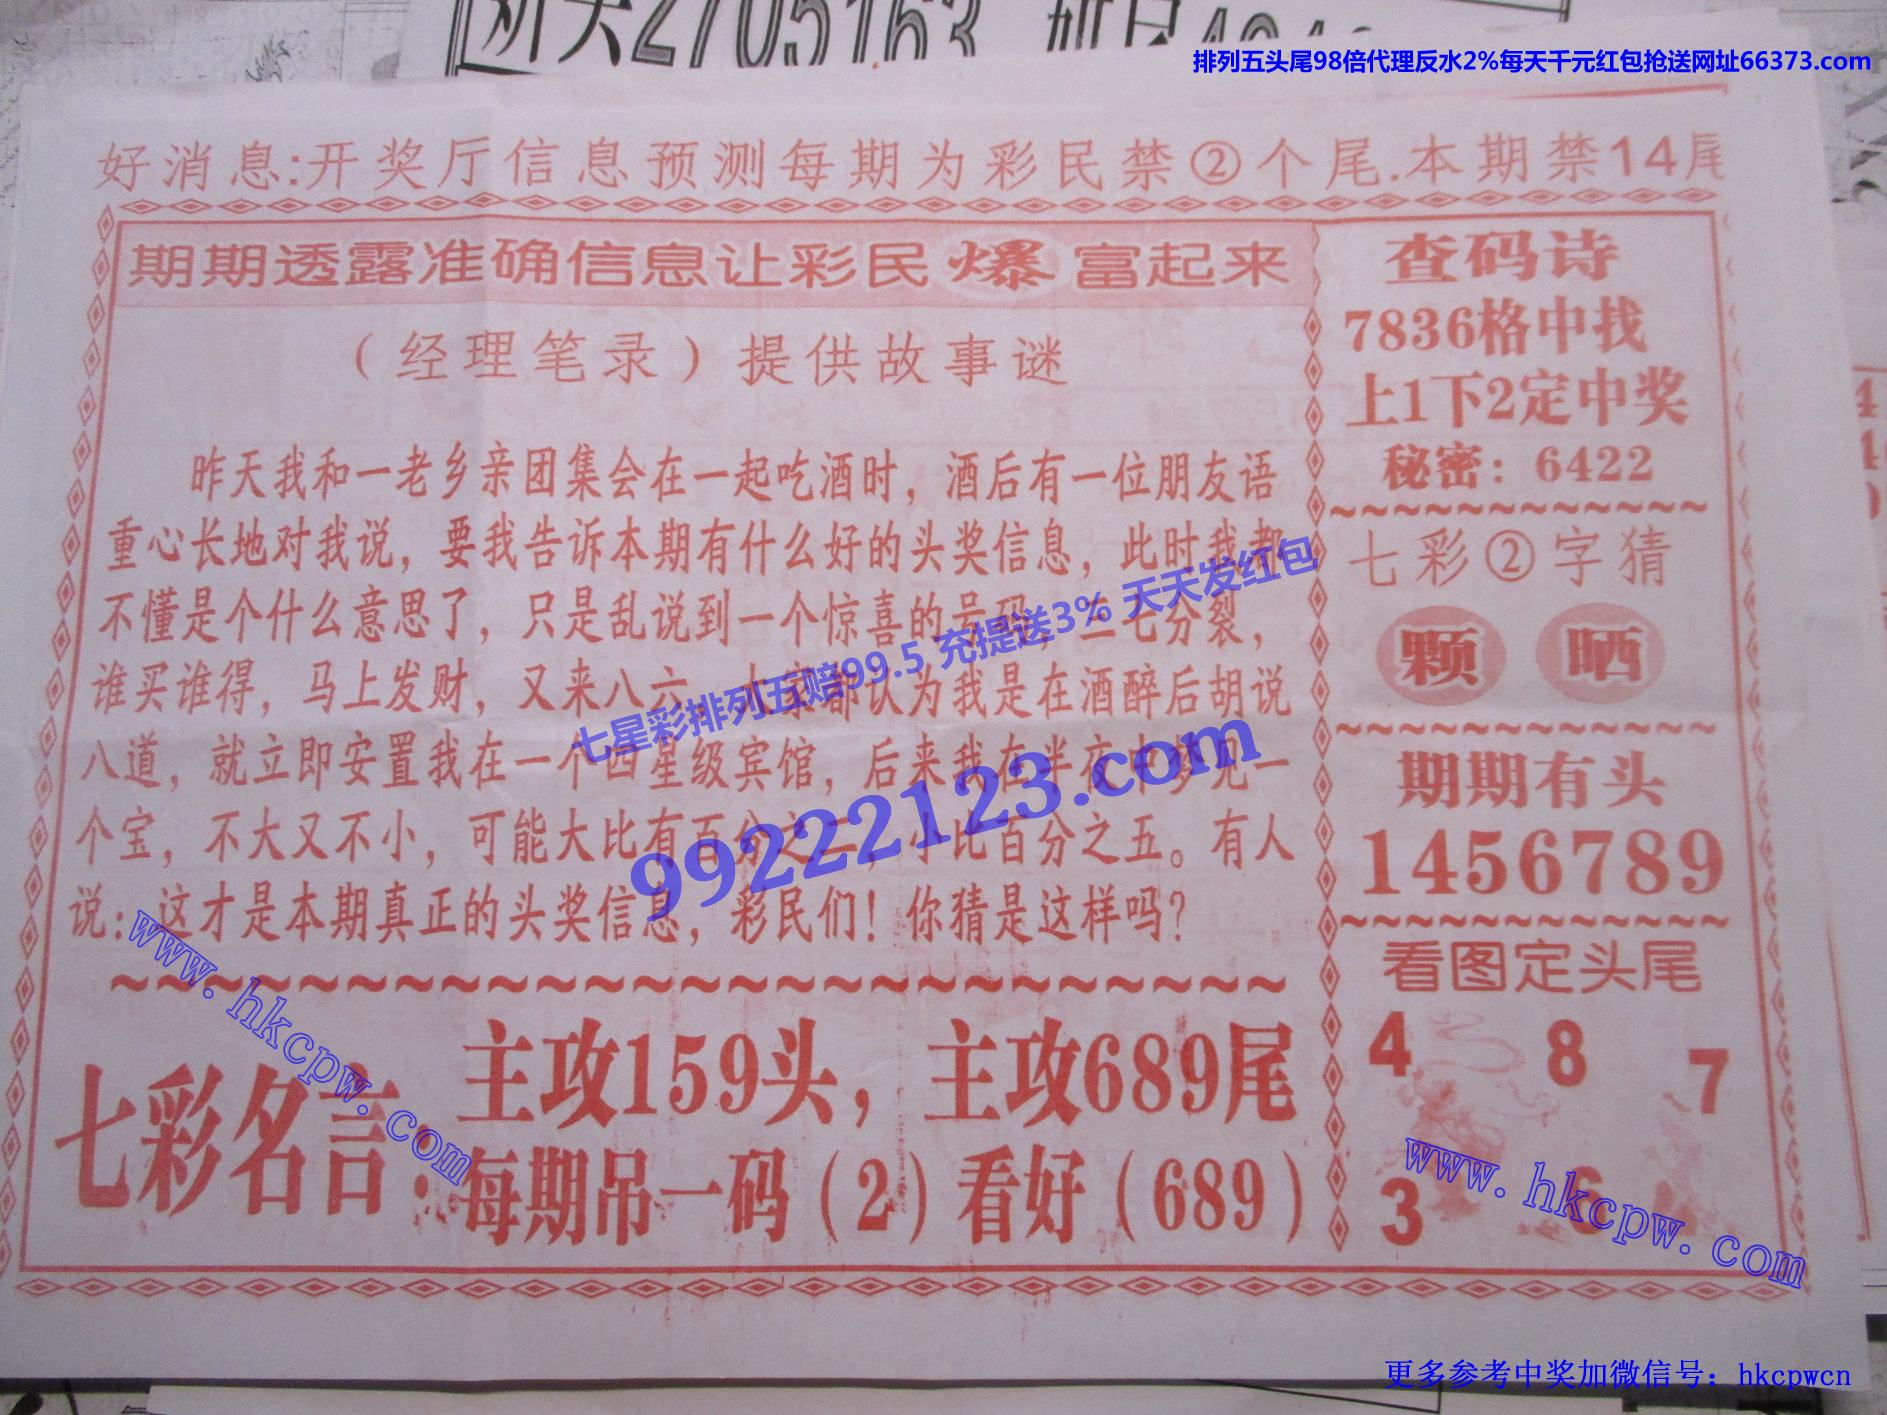 排列五头尾98倍代理反水2%每天千元红包抢送网址66373.com
好消息:开奖厅信息预测每期为彩民禁②个尾.本期禁14尾
期期透露准确信息让彩民爆富起来
（经理笔录）提供故事谜
昨天我和一老乡亲团集会在一起吃酒时，酒后有一位朋友语
重心长地对我说，要我告诉本期有什么好的头奖信息，此时我都
不懂是个什么意思了，只是乱说到一个惊喜的号码，二七分裂，
谁买谁得，马上发财，又来八六，大家都认为我是在酒醉后胡说
八道，就立即安置我在一个四星级宾馆，后来我在半夜中梦见一
个宝，不大又不小，可能大比有百分之二，小比百分之五。有人
说：这才是本期真正的头奖信息，彩民们！你猜是这样吗？
七彩名言：
主攻159头，主攻689尾
每期吊一码（2）看好（689）
查码诗
7836格中找
上1下2定中奖
秘密：6422
七彩②字猜
颗 晒
期期有头
1456789
看图定头尾
4 8 7
3 6
七星彩排列五赔99.5 充提送3% 天天发红包
99222123.com
www.hkcpw.com
www.hkcpw.com
更多参考中奖加微信号：hkcpwcn